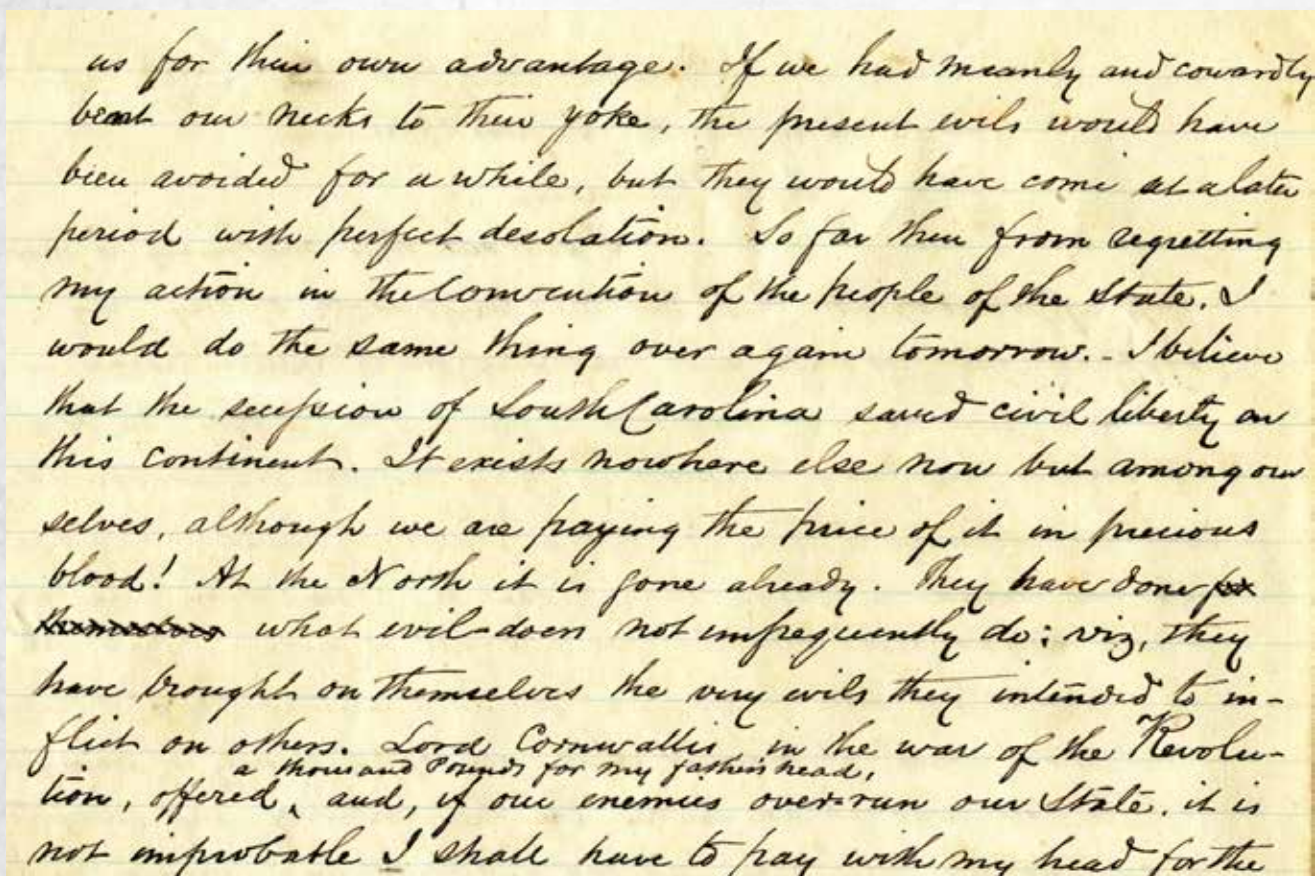 us for their own advantage. If we had meanly and cowardly
bent our necks to their yoke, the present evils would have
been avoided for a while, but they would have come at a later
period with perfect desolation. So far then from regretting
my action in the Convention of the people of the State, I
would do the same thing over again tomorrow. - I believe
that the secession of South Carolina saved civil liberty on
this continent. It exists nowhere else now but among our
selves, although we are paying the price of it in precious
blood! At the North it is gone already. They have done
what evil-doers not unfrequently do; viz, they
have brought on themselves the very evils they intended to in-
flict on others. Lord Cornwallis, in the war of the Revolu-
a thousand Pounds for my father's head,
tion, offered, and, if our enemies over-run our State, it is
not improbable I shall have to pay with my head for the